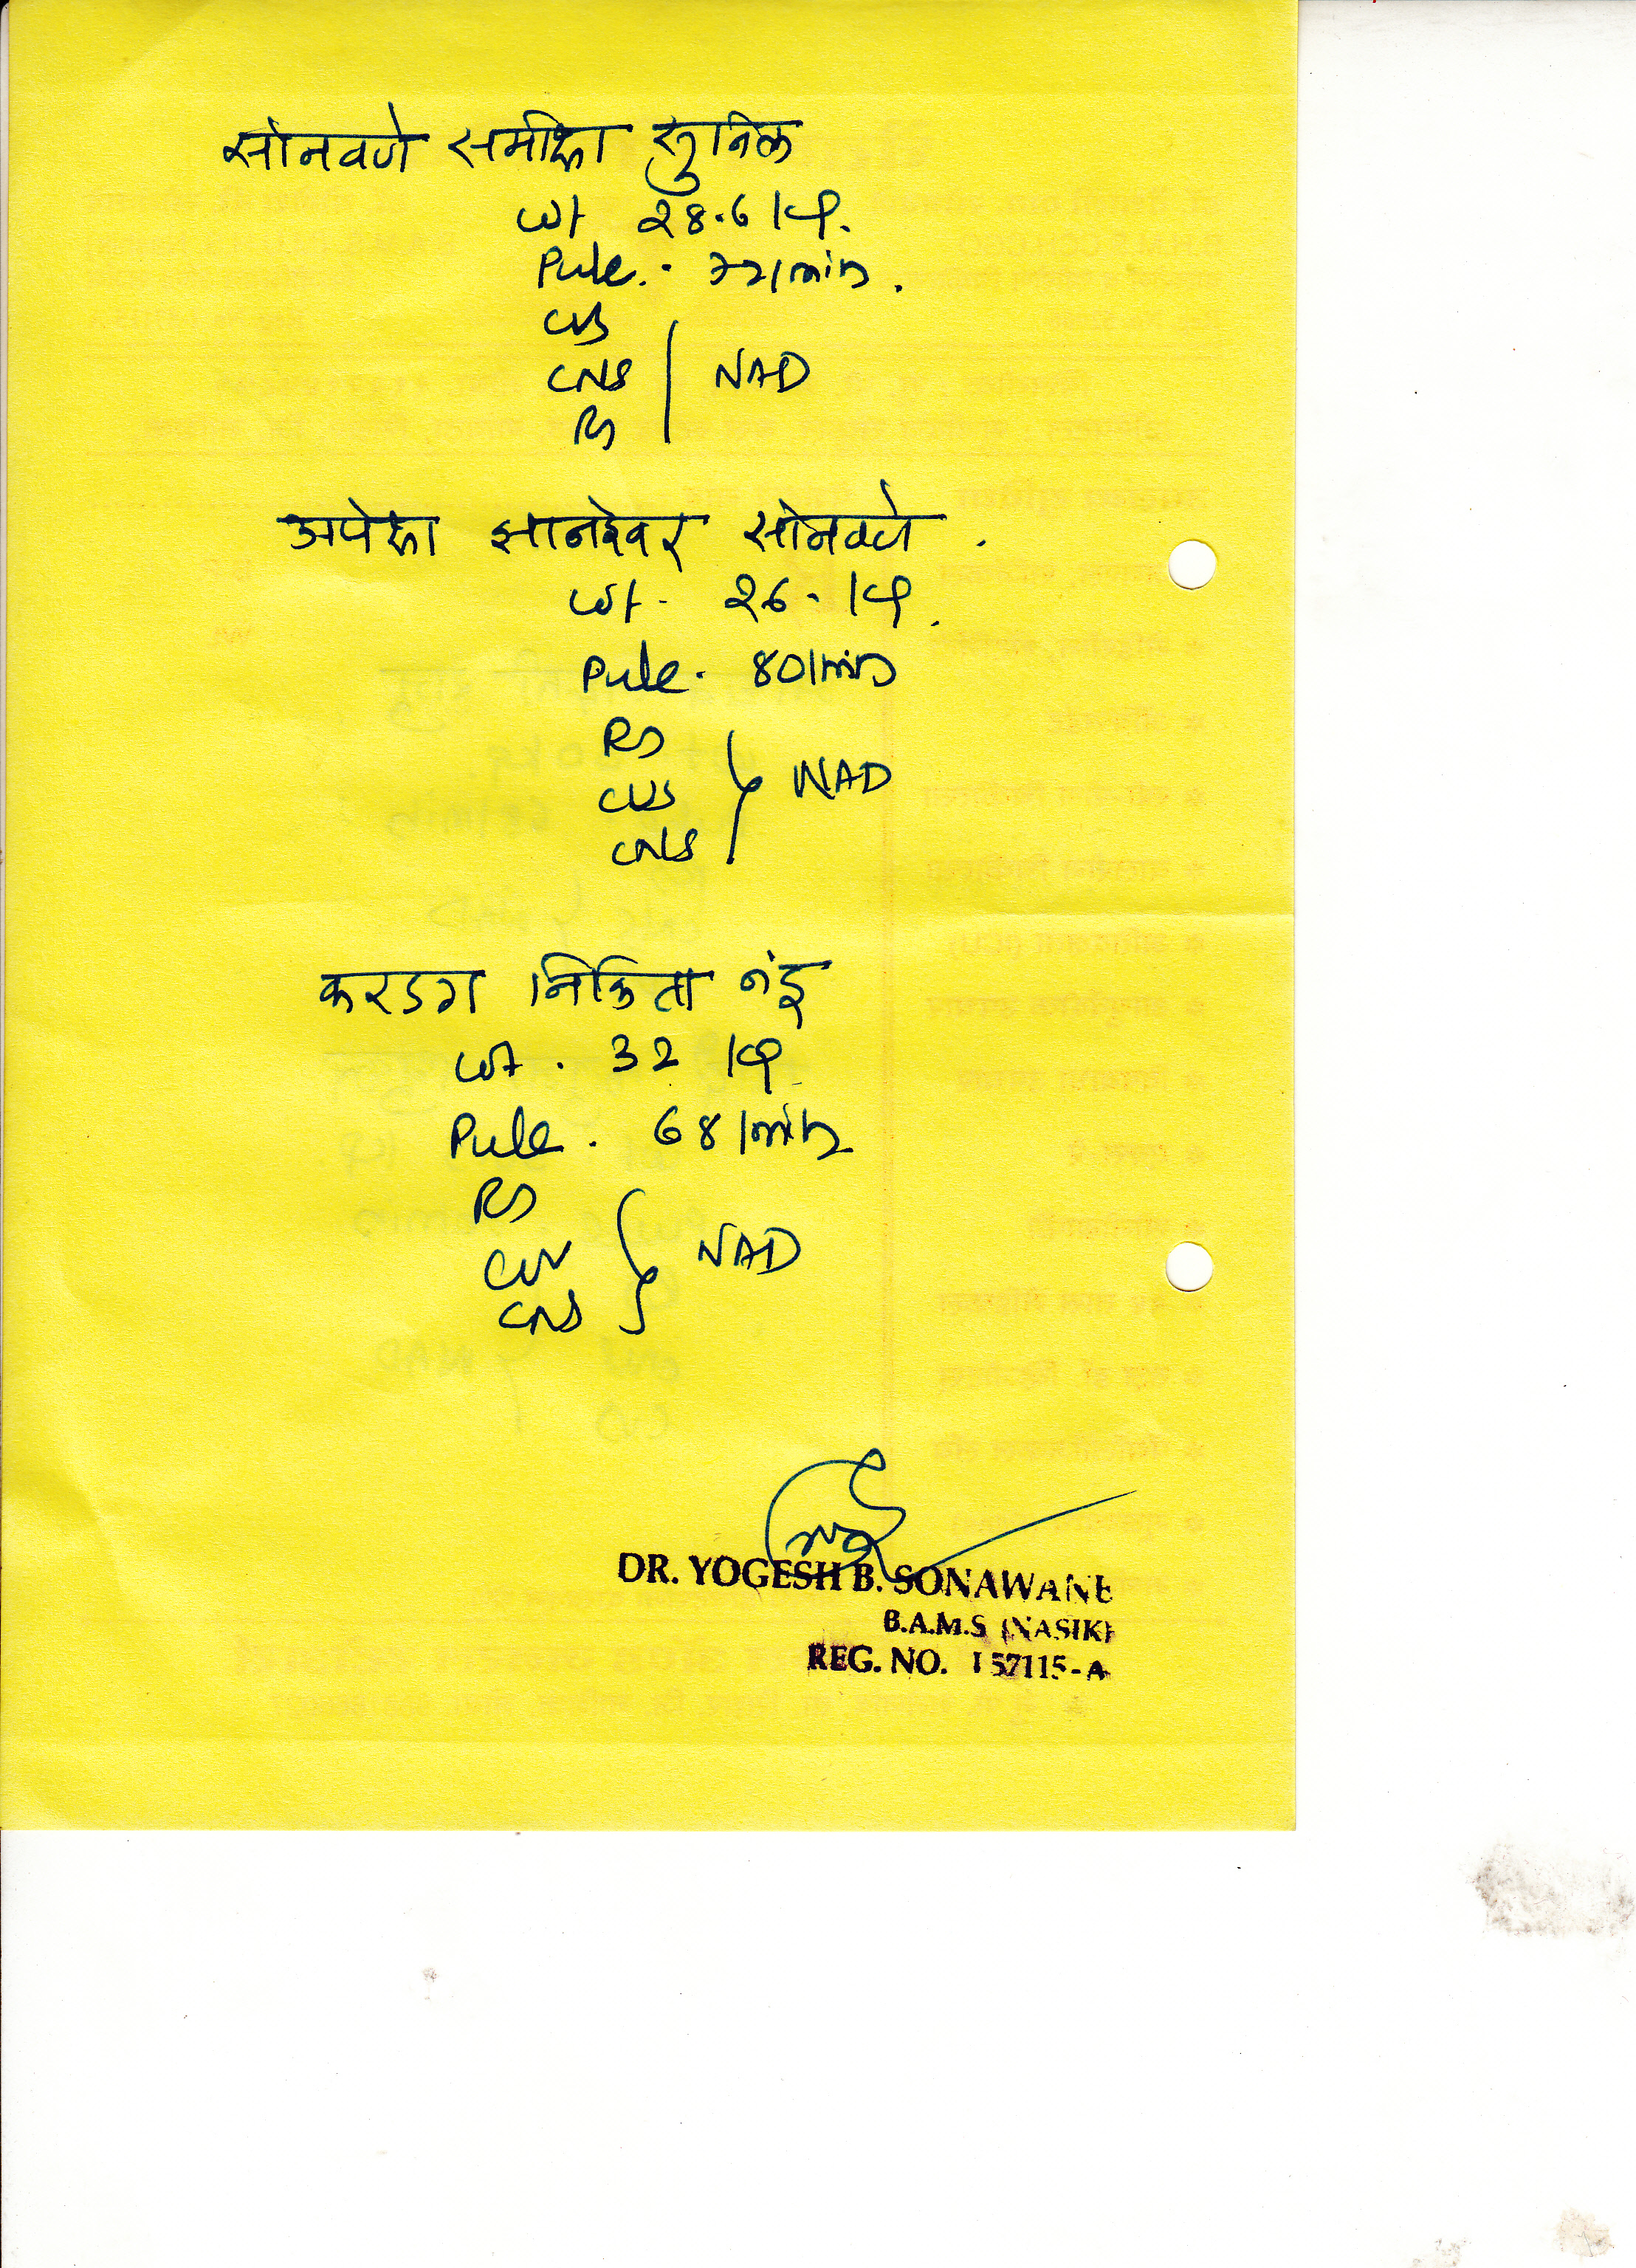 सोनवणे समीक्षा सुनिल
wt 28.6 kg.
Pulse. 72/min.
CVS
CNS } NAD
RS
अपेक्षा ज्ञानेश्वर सोनवणे.
wt. 26. kg.
Pulse. 80/min
RS
CVS } NAD
CNS
करडग निकिता नंदू
wt. 32 kg
Pulse. 68/min
RS
CVS } NAD
CNS
DR. YOGESH B. SONAWANE
B.A.M.S (NASIK)
REG. NO. I 57115-A